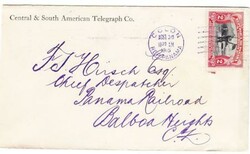 Central & South American Telegraph Co.
COLON
F J Hirsch Esq
Chief Despatcher
Panama Railroad
Balboa Heights
C.Z.